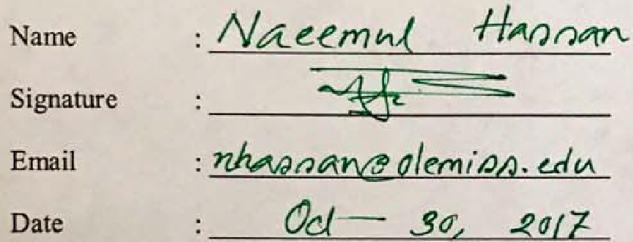 Name : Naeemul Hassan
Signature :
Email : nhassan@olemiss.edu
Date : Oct - 30, 2017